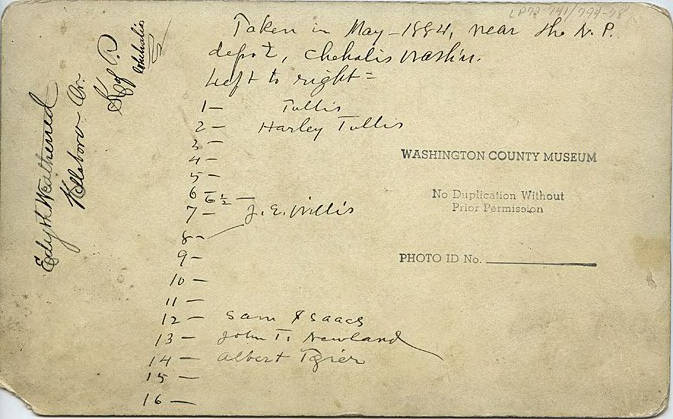 Taken in May - 1884, near the N.P.
depot, Chehalis Washn.
Left to right =
1 — Tullis
2 — Harley Tullis
3 —
4 —
5 —
6 — 6½ —
7 — J. E. Willis
8 —
9 —
10 —
11 —
12 — Sam Isaacs
13 — John T. Newland
14 — Albert Tozier
15 —
16 —
WASHINGTON COUNTY MUSEUM
No Duplication Without
Prior Permission
PHOTO ID No.
Edyth Weatherred
Hillsboro Or.
K of P
Chehalis